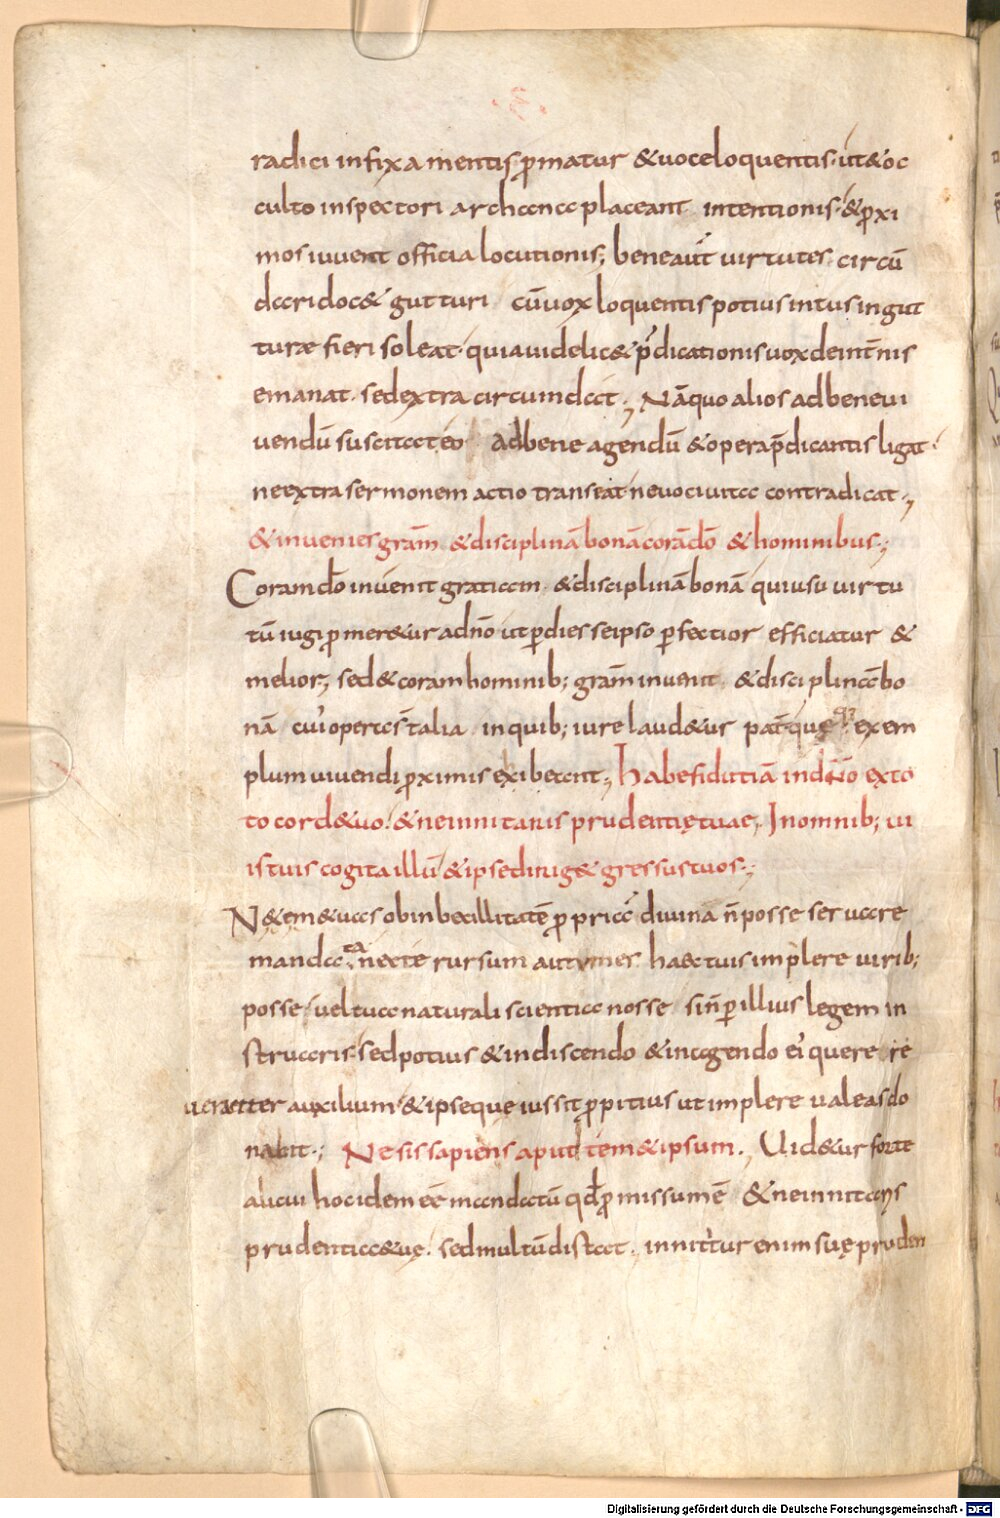 ·3·
radici infixa mentis p̄matur &uoce loquentis· ut &oc
culto inspectori archana placeant intentionis· &p̄xi
mos iuuent officia locutionis; bene aut̄ uirtutes circū
dari doc& gutturi cū uox loquentis potius intus in gut
ture fieri soleat· quia uidelic& p̄dicationis uox de int̄nis
emanat· sed extra circumdat; Nā quo alios ad bene ui
uendū suscitat eo ad bene agendū &opera p̄dicantis ligat·
ne extra sermonem actio transeat· ne uoci uita contradicat·,
&inuenies grām &disciplinā bonā corā dō &hominibus·;
Coram dō inuenit gratiam· &disciplinā bonā qui usu uirtu
tū iugi p̄mer&ur ad nō ut p̄ dies se ipso p̄fectior efficiatur &
melior; sed &coram hominib; grām inuenit &disciplinā bo
nā cui' opera s̄t talia in quib; iure laud&ur pat̄ que exem
plum uiuendi p̄ximis exibeant·, Habe fidutiā in dn̄o ex to
to cord& tuo· &ne innitaris prudentię tuae, In omnib; ui
is tuis cogita illū &ipse dirig& gressus tuos·;
N& em &uas ob inbecillitatē p̄pria divina n̄ posse seruare
mandata nec te rursum autumes haec tuis implere uirib;
posse· uel tua naturali scientia nosse sin̄ p̄ illius legem in
struaris· sed potius &in discendo &in agendo ei' quere re
ueranter auxilium· &ipse que iussit p̄pitius ut implere ualeas do
nabit·; Ne sis sapiens aput tem&ipsum· Uid&ur forte
alicui hoc idem eē mandatū qd̄ p̄missum ē &ne innitaris
prudentiae tuę· sed multū distat· innititur enim suę pruden
Digitalisierung gefördert durch die Deutsche Forschungsgemeinschaft - DFG